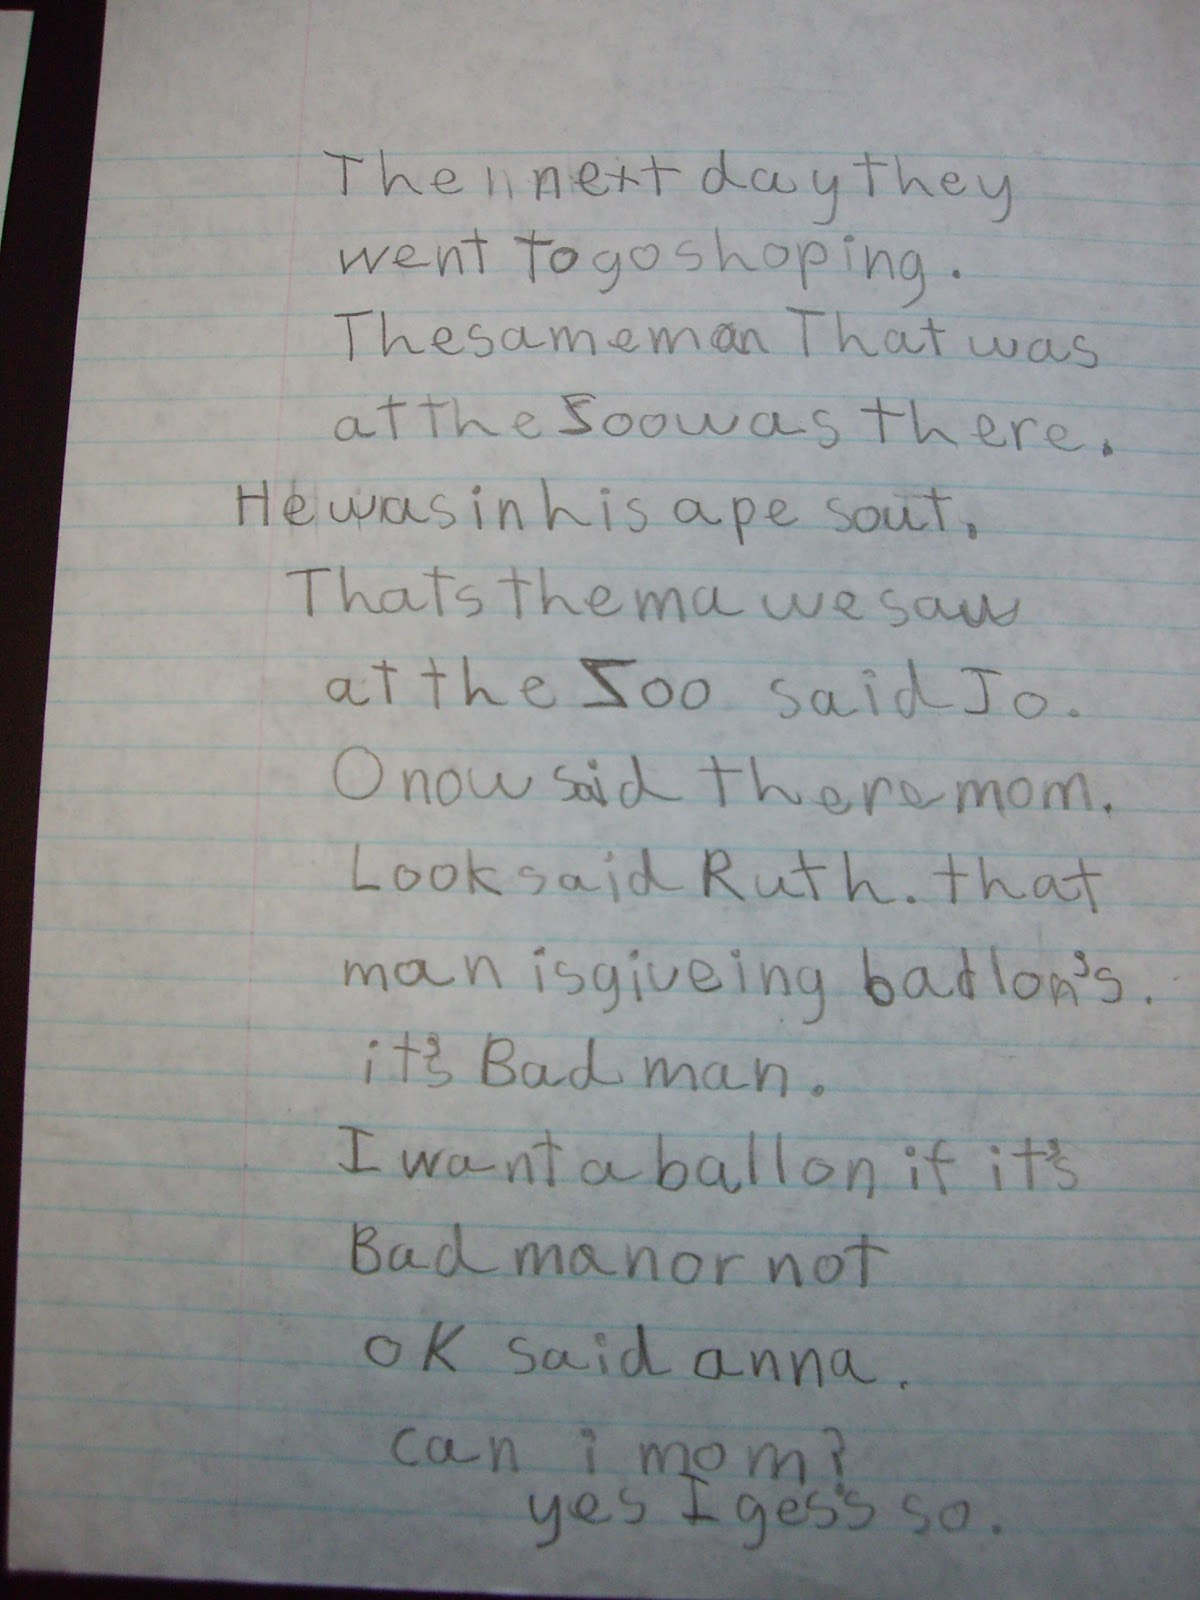 The next day they
went to go shoping.
The same man That was
at the Zoo was there.
He was in his ape sout.
Thats the ma we saw
at the Zoo said Jo.
O now said there mom.
Look said Ruth. that
man is giveing ballon's.
it's Bad man.
I want a ballon if it's
Bad man or not
oK said anna.
can i mom?
yes I gess so.